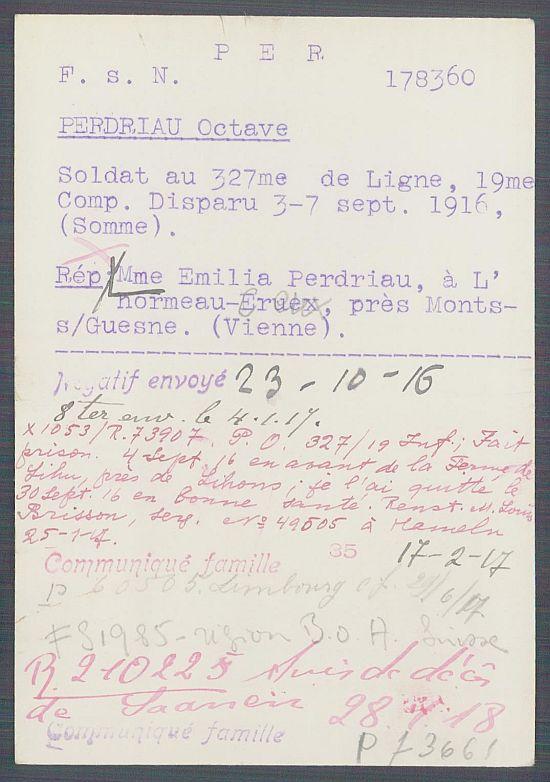 P E R
F. s. N. 178360
PERDRIAU Octave
Soldat au 327me de Ligne, 19me
Comp. Disparu 3-7 sept. 1916,
(Somme).
Rép Mme Emilia Perdriau, à L'
hormeau-Eruex, près Monts-
s/Guesne. (Vienne).
Negatif envoyé 23-10-16
8 ter env. le 4.1.17.
x 1053/R.73907. P.O. 327/19 Inf; Fait
prison. 4 Sept. 16 en avant de la Ferme de
Lihu, près de Lihons; je l'ai quitté le
30 Sept. 16 en bonne santé. Renst. M. Louis
Brisson, serg. No 49505 à Hameln
25-1-17.
Communiqué famille 35 17-2-17
P 60505. Limbourg 29/6/17
FS1985- B.O.A. Suisse
R 210225 Avis de décès
de 28 18
Communiqué famille
P 73661